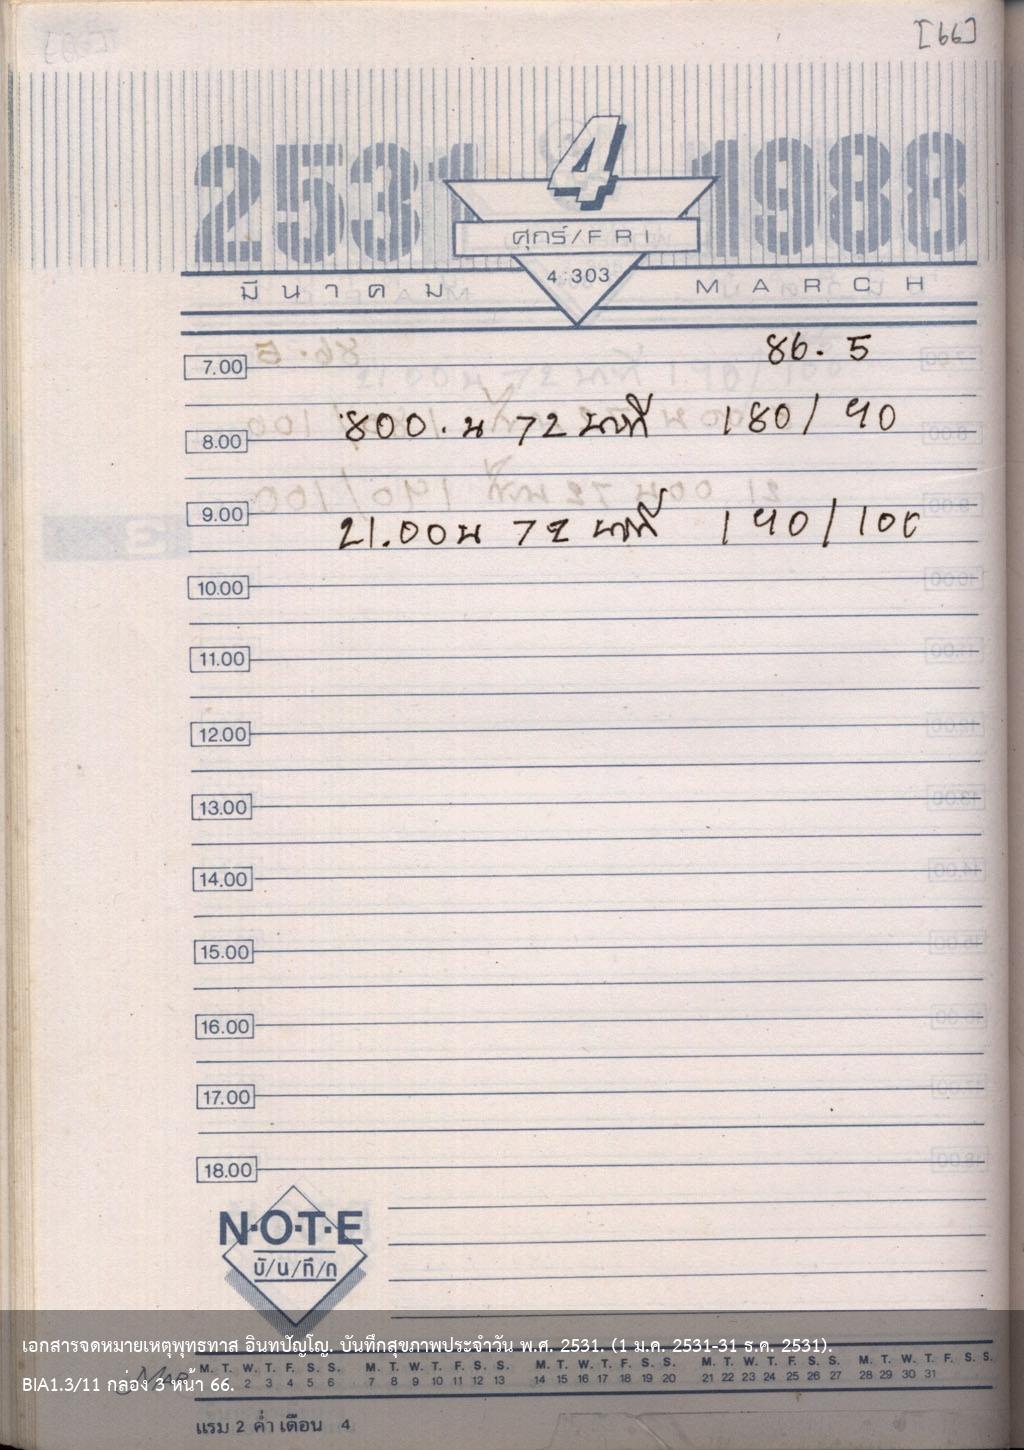 [66]
2531
4
1988
ศุกร์/FRI
4:303
มีนาคม
MARCH
86.5
7.00
800.น 72 นาที 180/90
8.00
9.00
21.00น 72 นาที 190/100
10.00
11.00
12.00
13.00
14.00
15.00
16.00
17.00
18.00
N·O·T·E
บั/น/ทึ/ก
เอกสารจดหมายเหตุพุทธทาส อินทปัญโญ. บันทึกสุขภาพประจำวัน พ.ศ. 2531. (1 ม.ค. 2531-31 ธ.ค. 2531).
M. T. W. T. F. S. S. M. T. W. T. F. S. S. M. T. W. T. F. S. S. M. T. W. T. F. S. S. M. T. W. T. F. S. S.
BIA1.3/11 กล่อง 3 หน้า 66.
2 3 4 5 6 7 8 9 10 11 12 13 14 15 16 17 18 19 20 21 22 23 24 25 26 27 28 29 30 31
แรม 2 ค่ำ เดือน 4